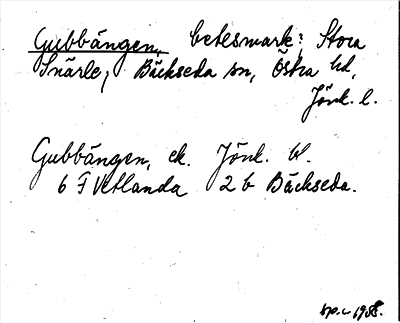 Gubbängen, betesmark; Stora
Snärle, Bäckseda sn, Östra hd,
Jönk. l.
Gubbängen, ek. Jönk. bl.
6 F Vetlanda 2 b Bäckseda.
1958.